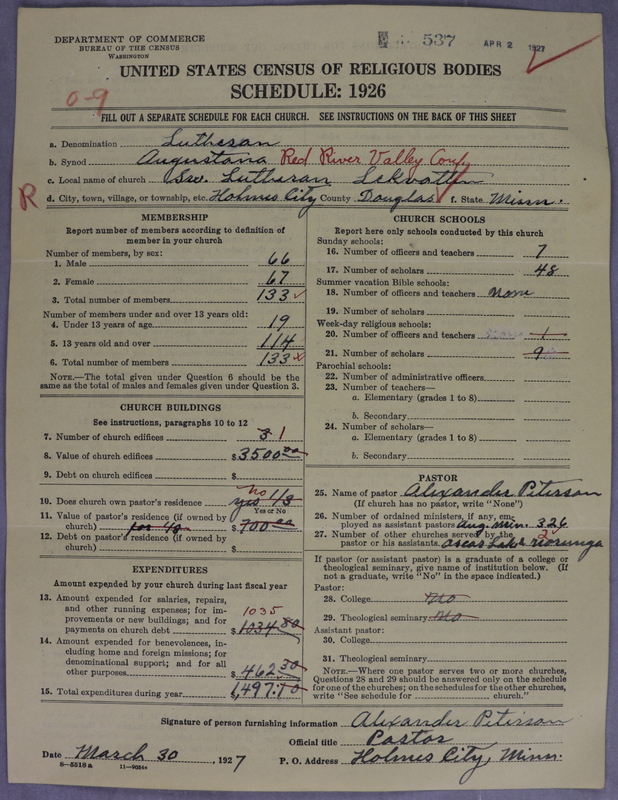 DEPARTMENT OF COMMERCE
BUREAU OF THE CENSUS
WASHINGTON
537 APR 2 1927
UNITED STATES CENSUS OF RELIGIOUS BODIES
SCHEDULE: 1926
0-9
FILL OUT A SEPARATE SCHEDULE FOR EACH CHURCH. SEE INSTRUCTIONS ON THE BACK OF THIS SHEET
a. Denomination Lutheran
b. Synod Augustana Red River Valley Conf.
c. Local name of church Sw. Lutheran
R
d. City, town, village, or township, etc. Holmes City County Douglas f. State Minn.
MEMBERSHIP
Report number of members according to definition of
member in your church
Number of members, by sex:
1. Male 66
2. Female 67
3. Total number of members 133
Number of members under and over 13 years old:
4. Under 13 years of age 19
5. 13 years old and over 114
6. Total number of members 133
NOTE.—The total given under Question 6 should be the
same as the total of males and females given under Question 3.
CHURCH BUILDINGS
See instructions, paragraphs 10 to 12
7. Number of church edifices 3 1
8. Value of church edifices $3500 00
9. Debt on church edifices $
10. Does church own pastor's residence no yes 1/3
Yes or No
11. Value of pastor's residence (if owned by
church) for 1/3 $700 00
12. Debt on pastor's residence (if owned by
church) $
EXPENDITURES
Amount expended by your church during last fiscal year
13. Amount expended for salaries, repairs,
and other running expenses; for im-
provements or new buildings; and for
payments on church debt 1035 $1034.80
14. Amount expended for benevolences, in-
cluding home and foreign missions; for
denominational support; and for all
other purposes $462 30
15. Total expenditures during year $1,497.10
CHURCH SCHOOLS
Report here only schools conducted by this church
Sunday schools:
16. Number of officers and teachers 7
17. Number of scholars 48
Summer vacation Bible schools:
18. Number of officers and teachers none
19. Number of scholars
Week-day religious schools:
20. Number of officers and teachers 1
21. Number of scholars 9
Parochial schools:
22. Number of administrative officers
23. Number of teachers—
a. Elementary (grades 1 to 8)
b. Secondary
24. Number of scholars—
a. Elementary (grades 1 to 8)
b. Secondary
PASTOR
25. Name of pastor Alexander Peterson
(If church has no pastor, write "None")
26. Number of ordained ministers, if any, em-
ployed as assistant pastors Aug. Min. 326
27. Number of other churches served by the 2
pastor or his assistants. Oscar Lake
If pastor (or assistant pastor) is a graduate of a college or
theological seminary, give name of institution below. (If
not a graduate, write "No" in the space indicated.)
Pastor:
28. College no
29. Theological seminary no
Assistant pastor:
30. College
31. Theological seminary
NOTE.—Where one pastor serves two or more churches,
Questions 28 and 29 should be answered only on the schedule
for one of the churches; on the schedules for the other churches,
write "See schedule for church."
Signature of person furnishing information Alexander Peterson
Official title Pastor
Date March 30, 1927 P. O. Address Holmes City, Minn.
8-5518a 11-9054